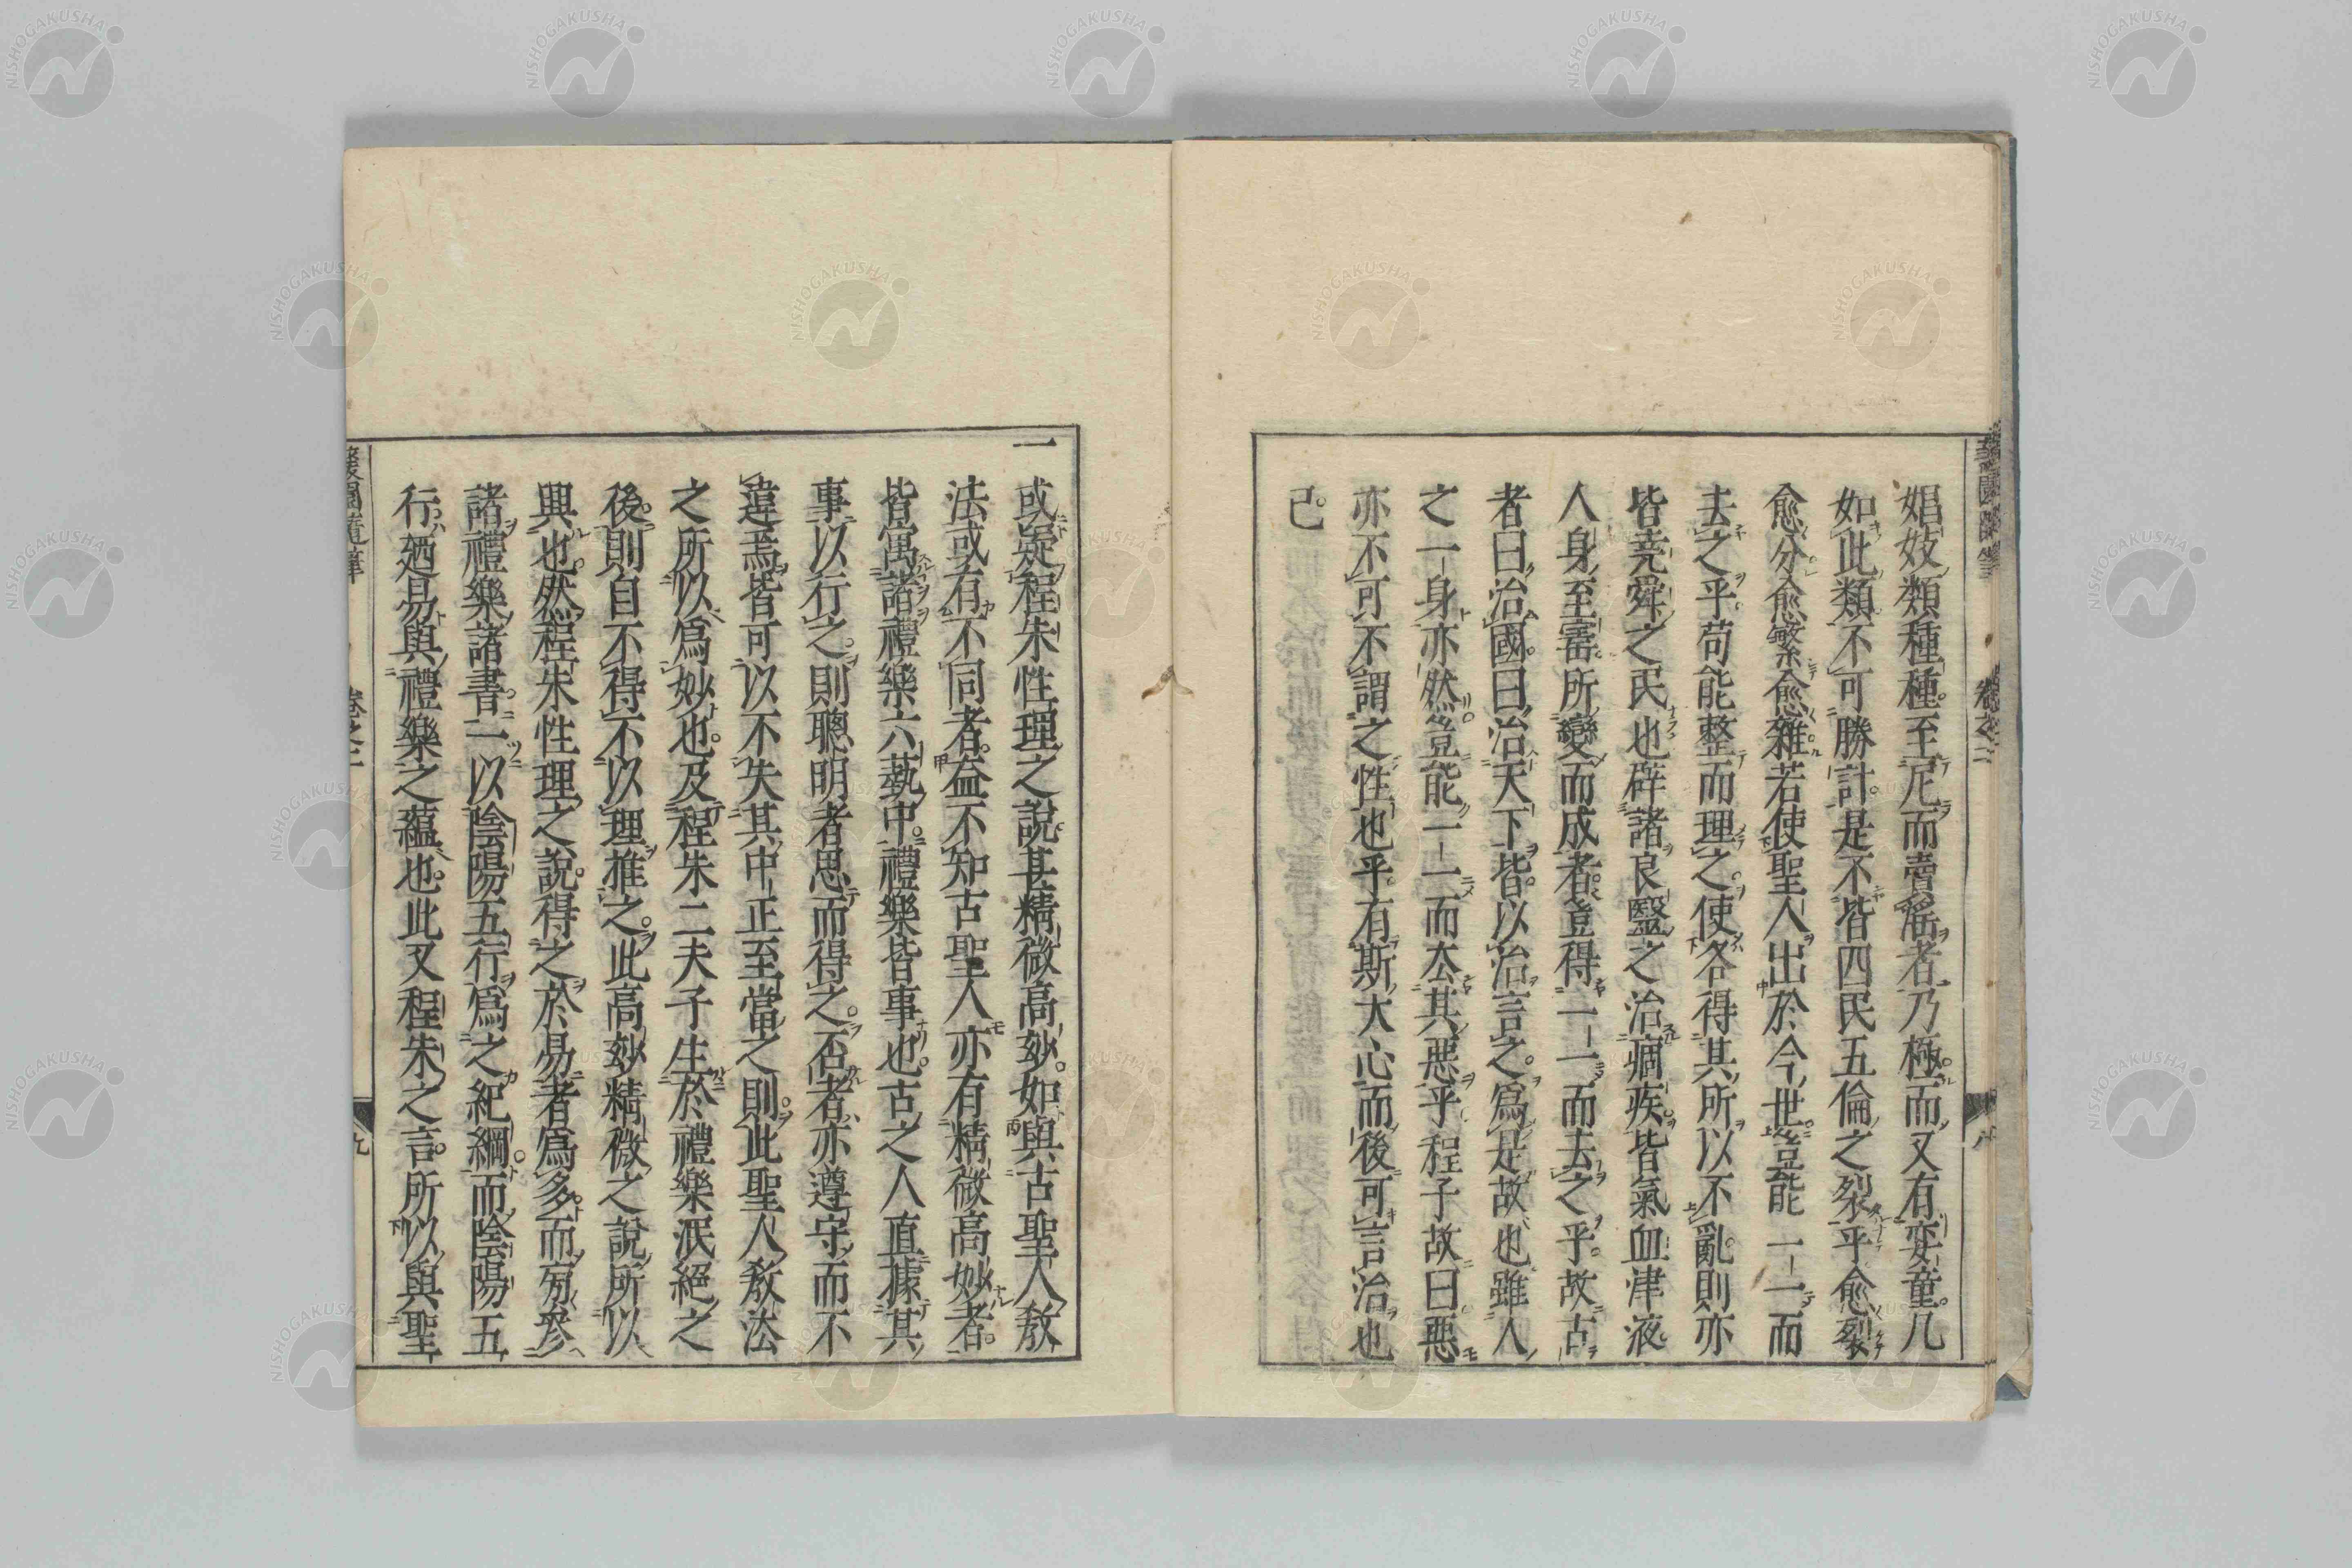 娼妓類種種至尼而賣淫者乃極而又有孌童凡
如此類不可勝計是不皆四民五倫之裂乎愈裂
愈分愈繁愈雜若使聖人出於今世豈能一一而
去之乎苟能整而理之使各得其所以不亂則亦
皆堯舜之民也辟諸良醫之治痼疾皆氣血津液
人身至寶所變而成者豈得一一而去之乎故古
者曰治國曰治天下皆以治言之爲是故也雖人
之一身亦然豈能一一而去其惡乎程子故曰惡
亦不可不謂之性也乎有斯大心而後可言治也
已
卷之二
八
一
或疑程朱性理之說甚精微高妙如與古聖人敎
法或有不同者益不知古聖人亦有精微高妙者
皆寓諸禮樂六藝中禮樂皆事也古之人直據其
事以行之則聰明者思而得之否者亦遵守而不
違焉皆可以不失其中正至當之則此聖人敎法
之所以爲妙也及程朱二夫子生於禮樂泯絕之
後則自不得不以理推之此高妙精微之說所以
興也然程朱性理之說得之於易者爲多而旁參
諸禮樂諸書二以陰陽五行爲之紀綱而陰陽五
行廼易與禮樂之蘊也此又程朱之言所以與聖
蘐園隨筆
卷之二
九
NISHOGAKUSHA